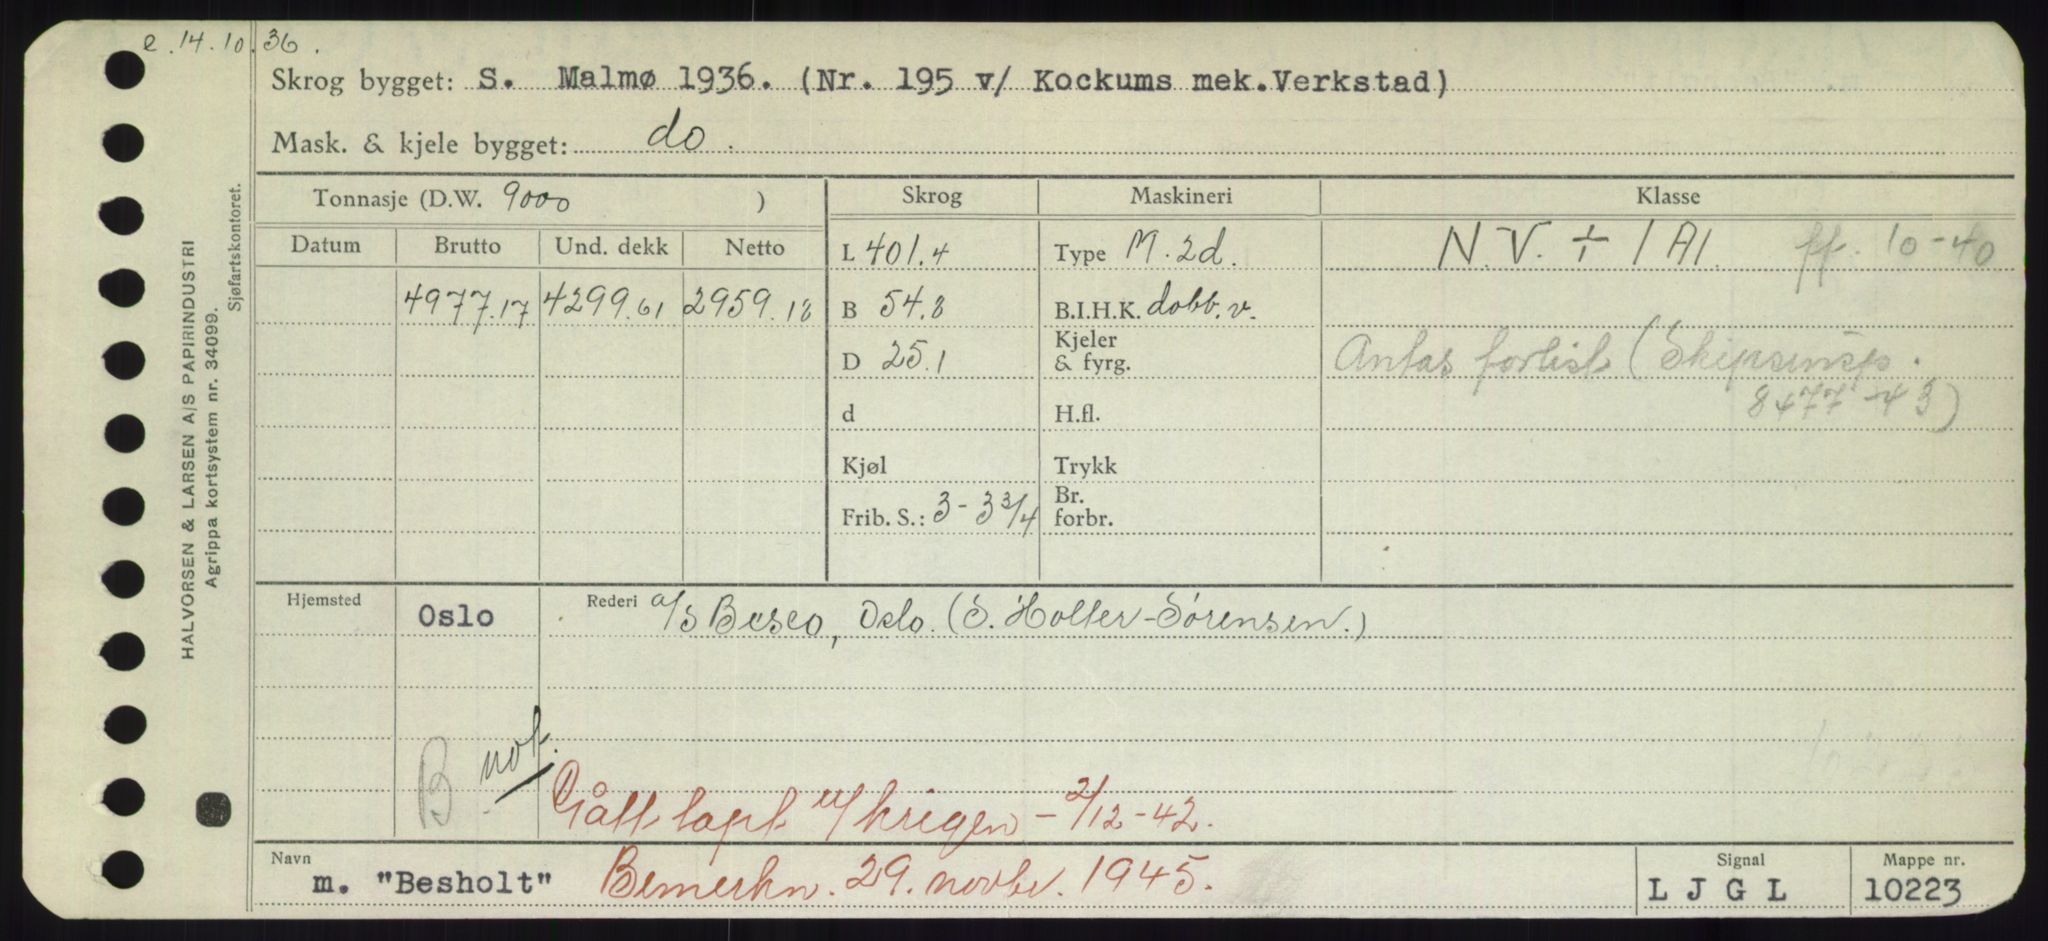 e. 14.10.36.
Skrog bygget: S. Malmø 1936. (Nr. 195 v/ Kockums mek.Verkstad)
Mask. & kjele bygget: do.
HALVORSEN & LARSEN A/S PAPIRINDUSTRI
Agrippa kortsystem nr. 34099.
Sjøfartskontoret.
Tonnasje (D.W. 9000 ) Skrog Maskineri Klasse
Datum Brutto Und. dekk Netto L 401.4 Type M. 2d. N.V. + 1A1. ff. 10-40
4977.17 4299.61 2959.18 B 54.8 B.I.H.K. dobb.v.
D 25.1 Kjeler & fyrg. Antas forlist (Skipsinsp.
8477-43)
d H.fl.
Kjøl Trykk
Frib. S.: 3-3 3/4 Br. forbr.
Hjemsted Oslo Rederi A/S Besco, Oslo. (S. Holter-Sørensen.)
B not.
Gått tapt u/krigen - 2/12-42.
Navn m. "Besholt" Bemerkn. 29. novbr. 1945. Signal LJGL Mappe nr. 10223